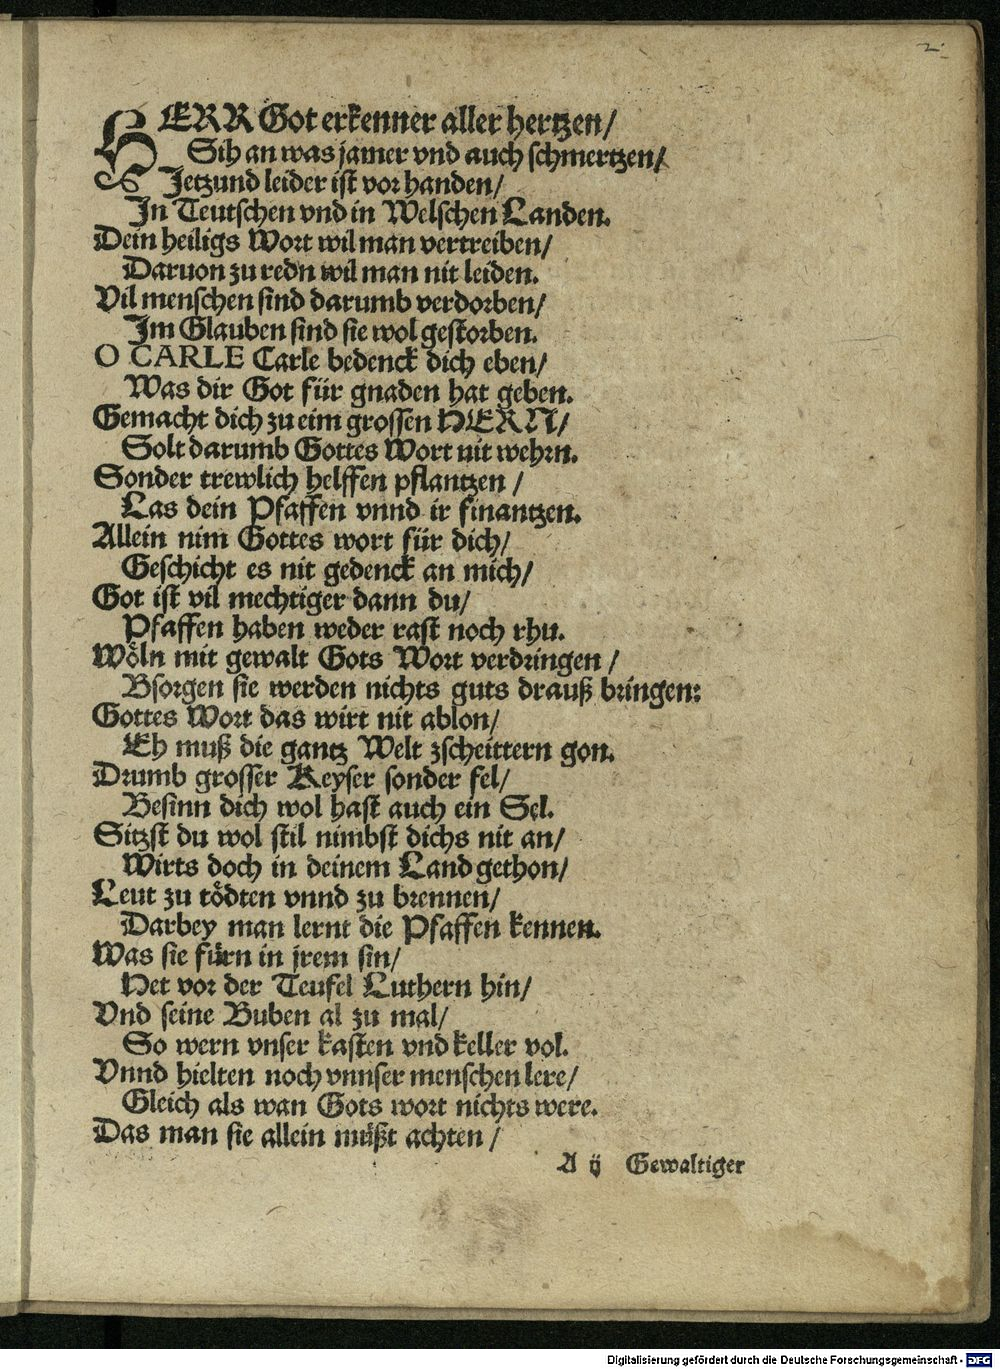 2.
HERR Got erkenner aller hertzen/
Sih an was jamer vnd auch schmertzen/
Jetzund leider ist vor handen/
In Teutschen vnd in Welschen Landen.
Dein heiligs Wort wil man vertreiben/
Daruon zu redn wil man nit leiden.
Vil menschen sind darumb verdorben/
Im Glauben sind sie wol gestorben.
O CARLE Carle bedenck dich eben/
Was dir Got für gnaden hat geben.
Gemacht dich zu eim grossen HERN/
Solt darumb Gottes Wort nit wehrn.
Sonder trewlich helffen pflantzen /
Las dein Pfaffen vnnd ir finantzen.
Allein nim Gottes wort für dich/
Geschicht es nit gedenck an mich/
Got ist vil mechtiger dann du/
Pfaffen haben weder rast noch rhu.
Wöln mit gewalt Gots Wort verdringen /
Bsorgen sie werden nichts guts drauß bringen:
Gottes Wort das wirt nit ablon/
Eh muß die gantz Welt zscheittern gon.
Drumb grosser Keyser sonder fel/
Besinn dich wol hast auch ein Sel.
Sitzst du wol stil nimbst dichs nit an/
Wirts doch in deinem Land gethon/
Leut zu tödten vnnd zu brennen/
Darbey man lernt die Pfaffen kennen.
Was sie fürn in jrem sin/
Het vor der Teufel Luthern hin/
Vnd seine Buben al zu mal/
So wern vnser kasten vnd keller vol.
Vnnd hielten noch vnnser menschen lere/
Gleich als wan Gots wort nichts were.
Das man sie allein müßt achten /
A ij Gewaltiger
Digitalisierung gefördert durch die Deutsche Forschungsgemeinschaft - DFG